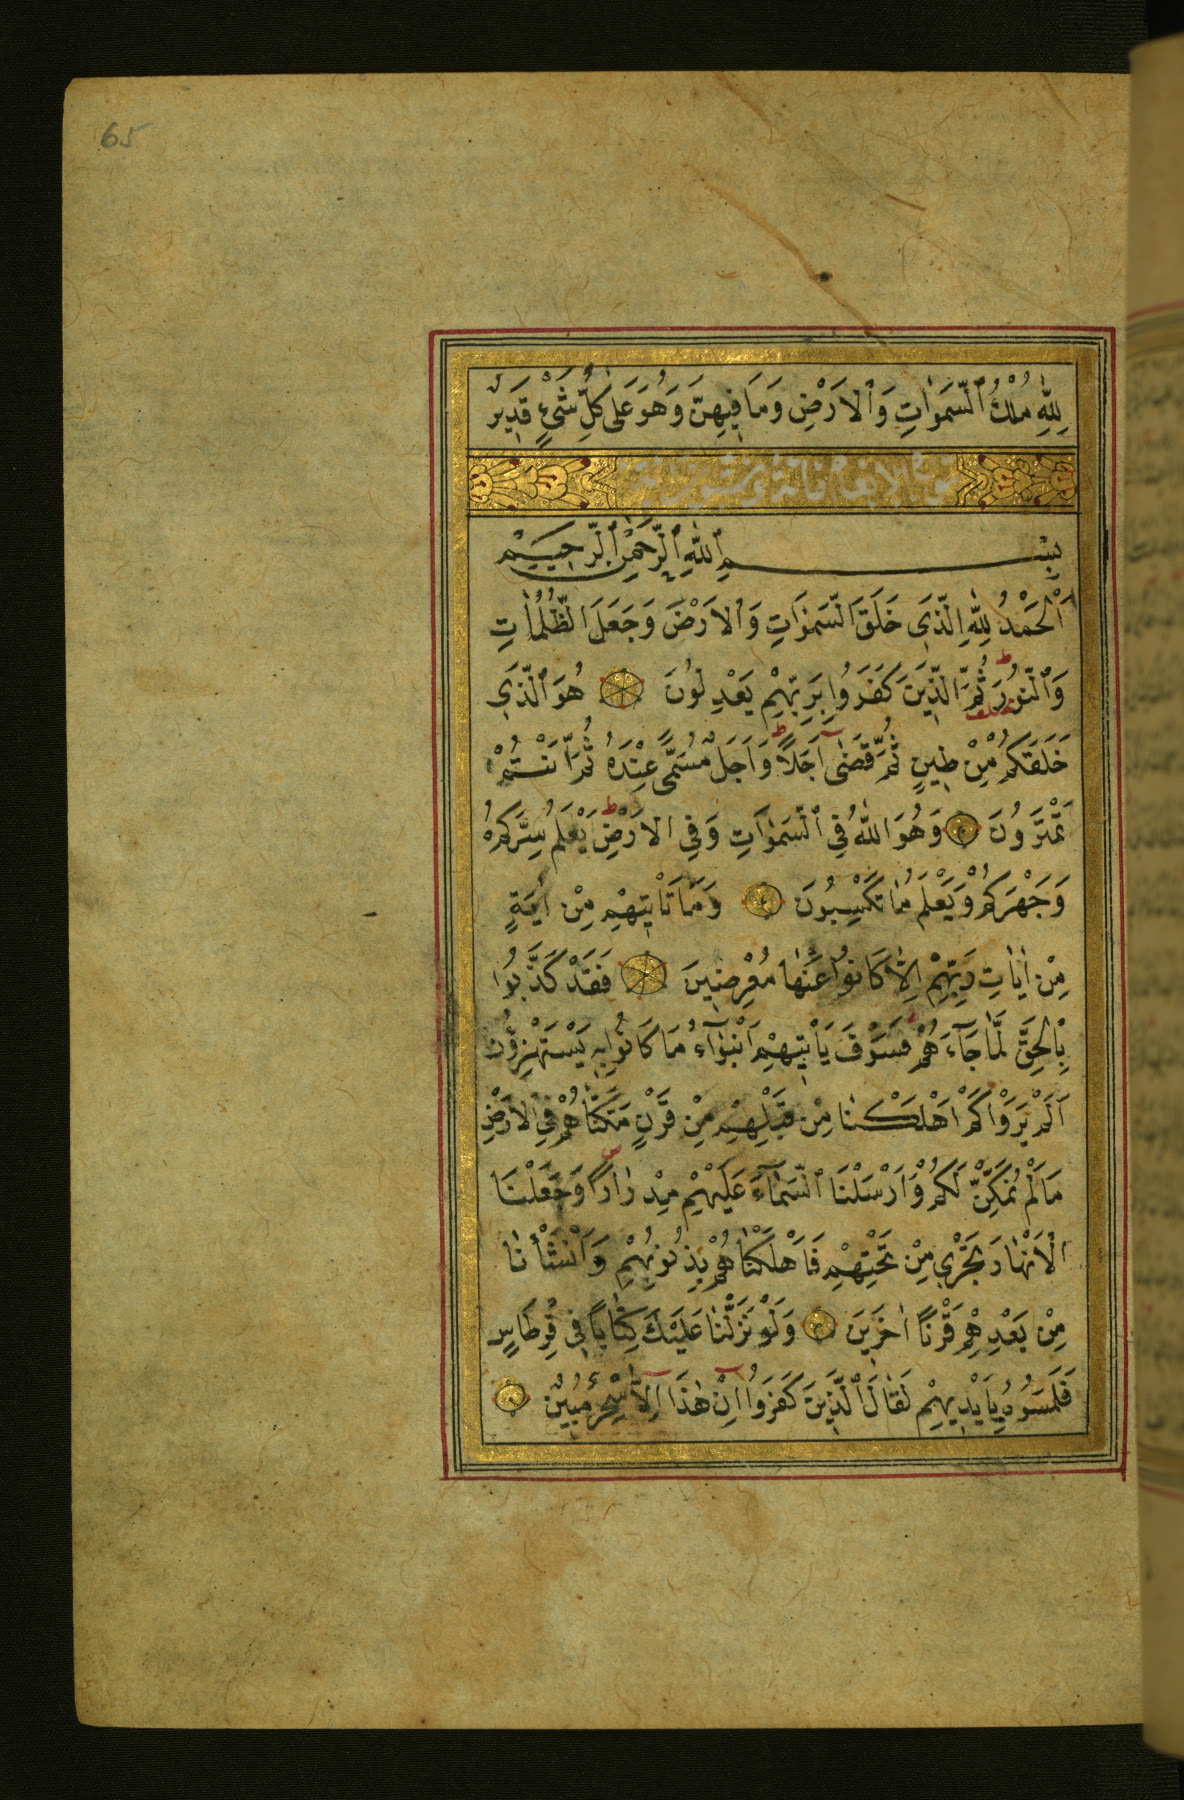 65
لِلّٰهِ مُلْكُ ٱلسَّمٰوَاتِ وَٱلْاَرْضِ وَمَا فِيهِنَّ وَهُوَ عَلٰى كُلِّ شَيْءٍ قَدِيرٌ
سورة الانعام مائة وستون اية
بِسْمِ ٱللّٰهِ ٱلرَّحْمٰنِ ٱلرَّحِيمِ
اَلْحَمْدُ لِلّٰهِ الَّذِى خَلَقَ السَّمٰوَاتِ وَٱلْاَرْضَ وَجَعَلَ الظُّلُمَاتِ
وَٱلنُّورَ ط ثُمَّ الَّذِينَ كَفَرُوا بِرَبِّهِمْ يَعْدِلُونَ هُوَ ٱلَّذِى
خَلَقَكُمْ مِنْ طِينٍ ثُمَّ قَضٰى اَجَلًا ط وَاَجَلٌ مُسَمًّى عِنْدَهُ ثُمَّ اَنْتُمْ
تَمْتَرُونَ وَهُوَ اللّٰهُ فِي ٱلسَّمٰوَاتِ وَفِي الْاَرْضِ ط يَعْلَمُ سِرَّكُمْ
وَجَهْرَكُمْ وَيَعْلَمُ مَا تَكْسِبُونَ وَمَا تَاْتِيهِمْ مِنْ اٰيَةٍ
مِنْ اٰيَاتِ رَبِّهِمْ اِلَّا كَانُوا عَنْهَا مُعْرِضِينَ فَقَدْ كَذَّبُوا
بِالْحَقِّ لَمَّا جَآءَهُمْ فَسَوْفَ يَاْتِيهِمْ اَنْبٰٓؤُا مَا كَانُوا بِهِ يَسْتَهْزِؤُنَ
اَلَمْ يَرَوْا كَمْ اَهْلَكْنَا مِنْ قَبْلِهِمْ مِنْ قَرْنٍ مَكَّنَّاهُمْ فِي الْاَرْضِ
مَا لَمْ نُمَكِّنْ لَكُمْ وَاَرْسَلْنَا ٱلسَّمَآءَ عَلَيْهِمْ مِدْرَارًا وَجَعَلْنَا
الْاَنْهَارَ تَجْرِي مِنْ تَحْتِهِمْ فَاَهْلَكْنَاهُمْ بِذُنُوبِهِمْ وَاَنْشَأْنَا
مِنْ بَعْدِهِمْ قَرْنًا اٰخَرِينَ وَلَوْ نَزَّلْنَا عَلَيْكَ كِتَابًا فِي قِرْطَاسٍ
فَلَمَسُوهُ بِاَيْدِيهِمْ لَقَالَ ٱلَّذِينَ كَفَرُوا اِنْ هٰذَا اِلَّا سِحْرٌ مُبِينٌ